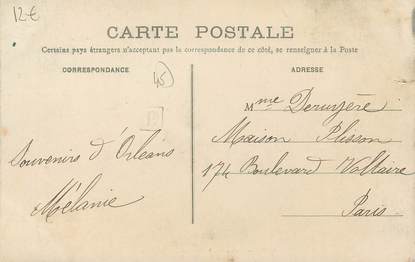 12 €
CARTE POSTALE
Certains pays étrangers n'acceptant pas la correspondance de ce côté, se renseigner à la Poste
CORRESPONDANCE
45
ADRESSE
Souvenirs d'Orléans
Mélanie
Mme Deruyère
Maison Plisson
174 Boulevard Voltaire
Paris